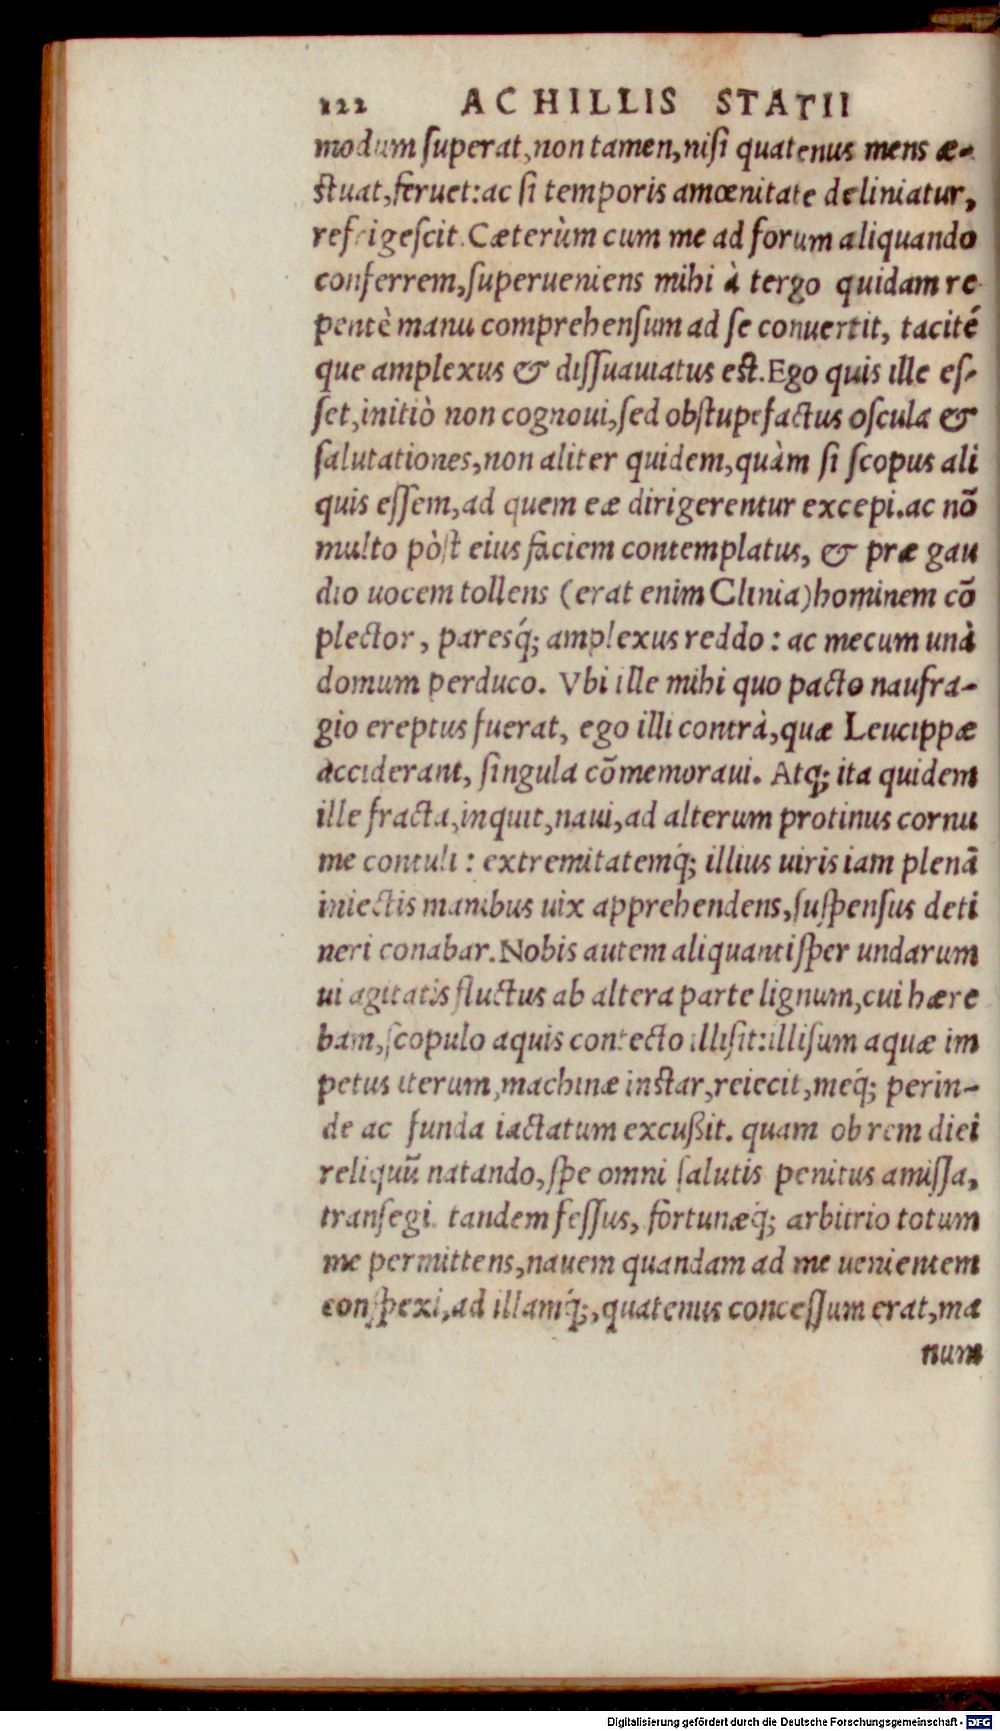 122 ACHILLIS STATII
modum ſuperat, non tamen, niſi quatenus mens æ-
ſtuat, feruet: ac ſi temporis amœnitate deliniatur,
refrigeſcit. Cæterùm cum me ad forum aliquando
conferrem, ſuperueniens mihi à tergo quidam re
pentè manu comprehenſum ad ſe conuertit, tacité
que amplexus & diſſuauiatus eſt. Ego quis ille eſ-
ſet, initiò non cognoui, ſed obſtupefactus oſcula &
ſalutationes, non aliter quidem, quàm ſi ſcopus ali
quis eſſem, ad quem eæ dirigerentur excepi. ac nõ
multo pòſt eius faciem contemplatus, & præ gau
dio uocem tollens (erat enim Clinia) hominem cõ
plector, paresq́; amplexus reddo: ac mecum unà
domum perduco. Vbi ille mihi quo pacto naufra-
gio ereptus fuerat, ego illi contrà, quæ Leucippæ
acciderant, ſingula cõmemoraui. Atq; ita quidem
ille fracta, inquit, naui, ad alterum protinus cornu
me contuli: extremitatemq́; illius uiris iam plenã
iniectis manibus uix apprehendens, ſuſpenſus deti
neri conabar. Nobis autem aliquantiſper undarum
ui agitatis fluctus ab altera parte lignum, cui hære
bam, ſcopulo aquis contecto illiſit: illiſum aquæ im
petus iterum, machinæ instar, reiecit, meq́; perin-
de ac funda iactatum excußit. quam ob rem diei
reliquũ natando, ſpe omni ſalutis penitus amiſſa,
tranſegi. tandem feſſus, fortunæq́; arbitrio totum
me permittens, nauem quandam ad me uenientem
conſpexi, ad illamq́;, quatenus conceſſum erat, ma
num
Digitalisierung gefördert durch die Deutsche Forschungsgemeinschaft - DFG